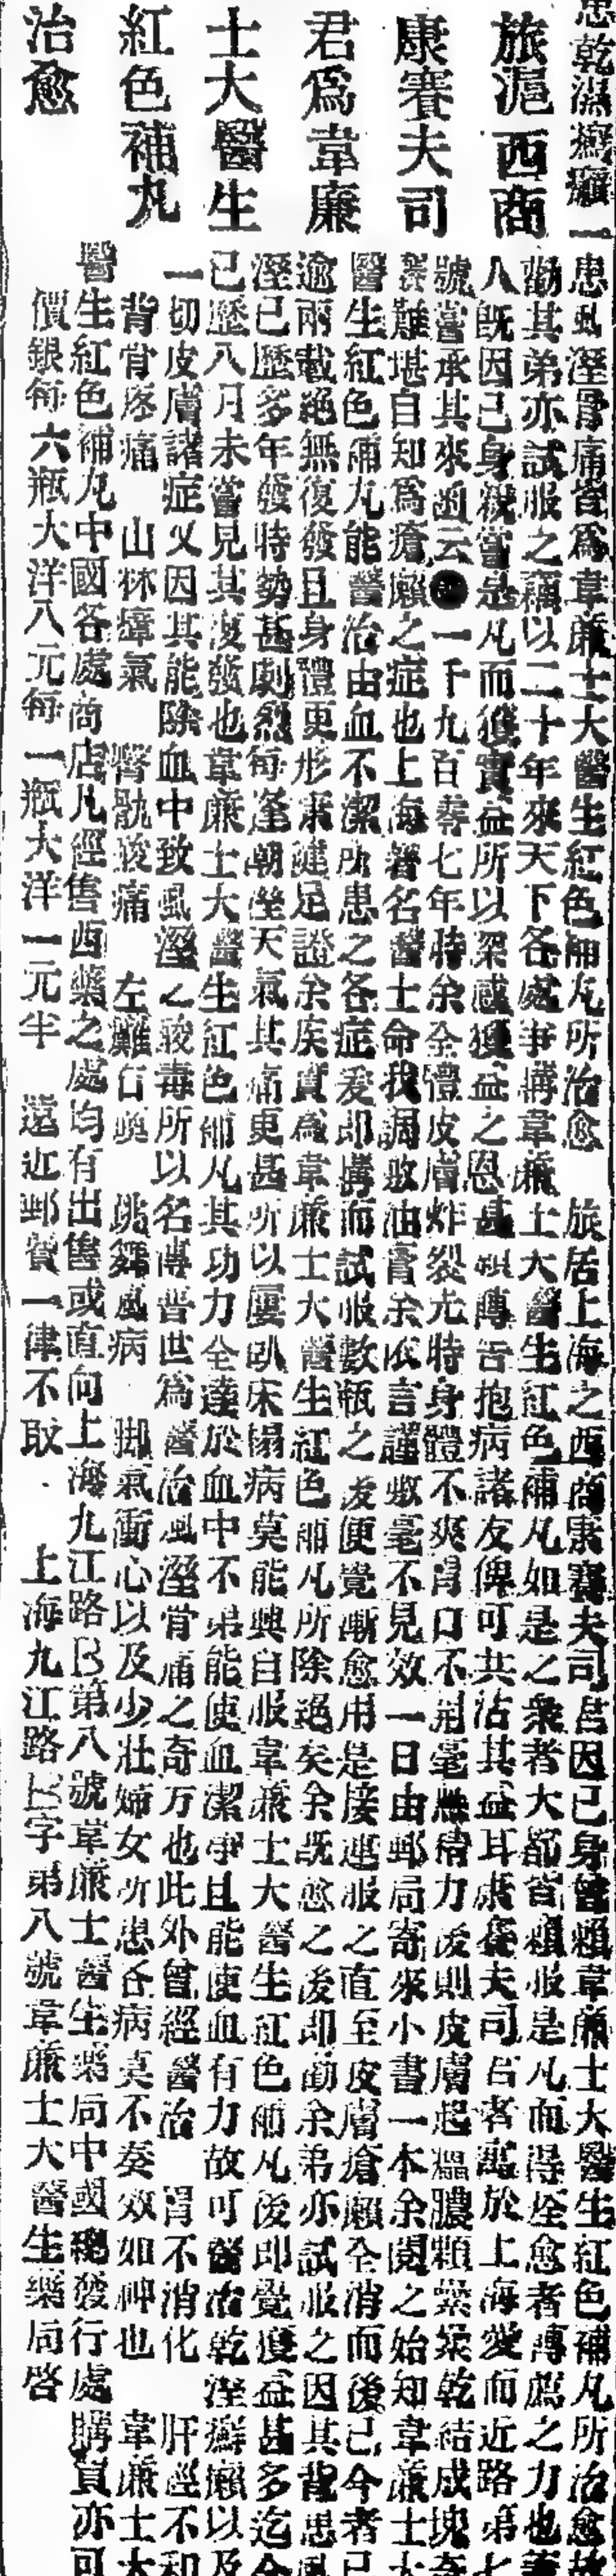 患乾濕癬癩一
旅滬西商
康賽夫司
君爲韋廉
士大醫生
紅色補丸
治愈
患風溼骨痛皆爲韋廉士大醫生紅色補丸所治愈 旅居上海之西商康賽夫司君因己身曾賴韋廉士大醫生紅色補丸所治愈故
勸其弟亦試服之藉以二十年來天下各處事購韋廉士大醫生紅色補丸如是之衆者大都皆賴服是丸而得痊愈者傳薦之力也蓋
人旣因己身親嘗是丸而獲實益所以深感獲益之恩甚願傳告抱病諸友俾可共沾其益耳康賽夫司君者寓於上海愛而近路第七
號嘗承其來函云 一千九百零七年時余全體皮膚炸裂尤特身體不爽胃口不開毫無精力後則皮膚起瘟膿顆纍纍乾結成塊奇
癢難堪自知爲瘡癩之症也上海著名醫士命我調敷油膏余依言謹敷毫不見效一日由郵局寄來小書一本余閱之始知韋廉士大
醫生紅色補丸能醫治由血不潔所患之各症爰卽購而試服數瓶之後便覺漸愈用是接連服之直至皮膚瘡癩全消而後已今者已
逾兩載絕無復發且身體更形康健足證余疾實爲韋廉士大醫生紅色補丸所除絕矣余旣愈之後卽勸余弟亦試服之因其背患風
溼已歷多年發時勢甚劇烈每逢朝溼天氣其痛更甚所以屢臥床榻病莫能興自服韋廉士大醫生紅色補丸後卽覺獲益甚多迄今
已歷八月未嘗見其復發也韋廉士大醫生紅色補丸其功力全達於血中不第能使血潔淨且能使血有力故可醫治乾溼癬癩以及
一切皮膚諸症又因其能除血中致風溼之酸毒所以名傳普世爲醫治風溼骨痛之奇方也此外曾經醫治 胃不消化 肝經不和
背骨疼痛 山林瘴氣 臀骩酸痛 左癱右瘓 跳舞風病 脚氣衝心以及少壯婦女所患各病莫不奏效如神也 韋廉士大
醫生紅色補丸中國各處商店凡經售西藥之處均有出售或直向上海九江路B第八號韋廉士醫生藥局中國總發行處購買亦可
價銀每六瓶大洋八元每一瓶大洋一元半 遠近郵費一律不取 上海九江路B字第八號韋廉士大醫生藥局啓